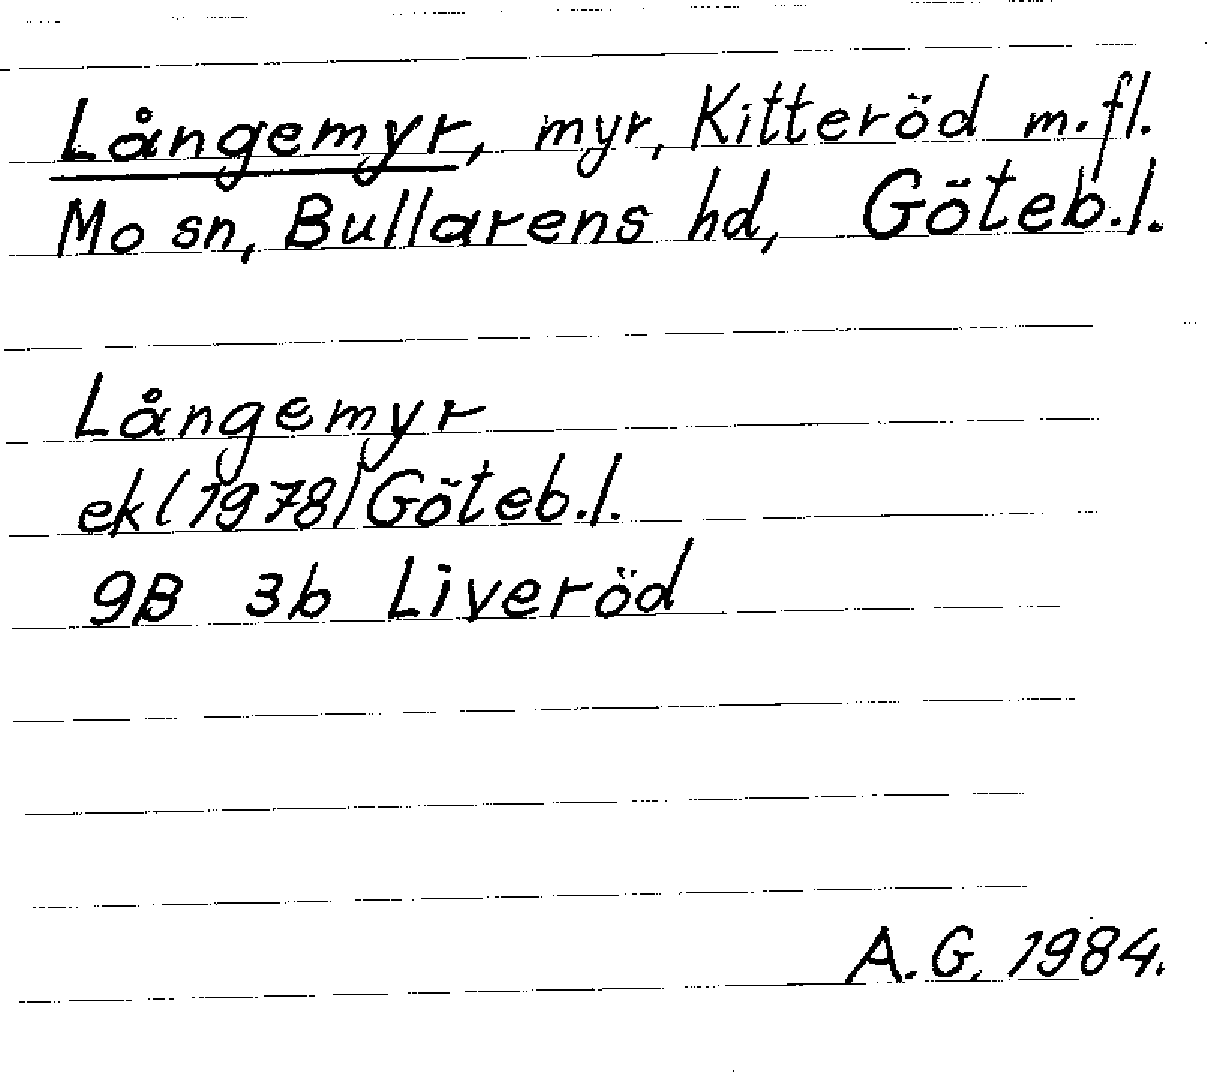 Långemyr, myr, Kitteröd m.fl.
Mo sn, Bullarens hd, Göteb.l.
Långemyr
ek (1978) Göteb.l.
9B 3b Liveröd
A.G. 1984.